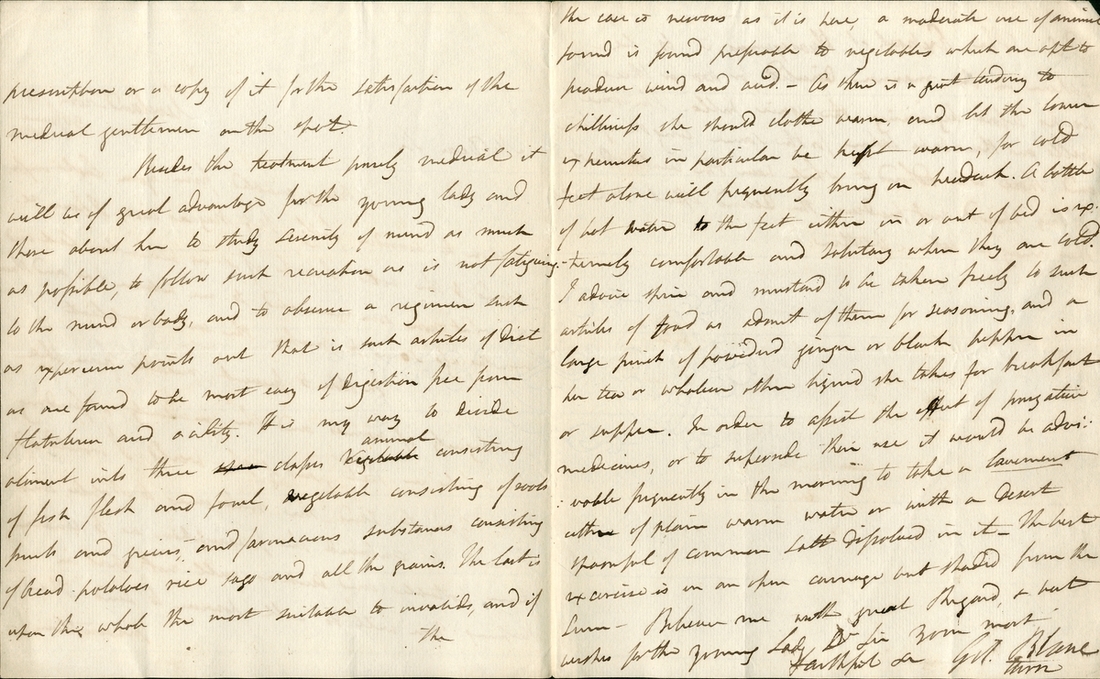 prescription or a copy of it for the satisfaction of the
medical gentlemen on the spot.
Besides the treatment purely medical it
will be of great advantage for the young lady and
those about her to study serenity of mind as much
as possible, to follow such recreation as is not fatiguing
to the mind or body, and to observe a regimen such
as experience points out that is such articles of diet
as are found to be most easy of digestion free from
flatulence and acidity. It is my way to divide
aliment into three classes animal consisting
of fish flesh and fowl, vegetable consisting of roots
fruits and greens, and farinaceous substances consisting
of bread potatoes rice sago and all the grains. The last is
upon the whole the most suitable to invalids, and if
the
the case is nervous as it is here, a moderate use of animal
food is found preferable to vegetables which are apt to
produce wind and acid. – As there is a great tendency to
chilliness she should clothe warm, and let the lower
extremities in particular be kept warm, for cold
feet alone will frequently bring on headach. A bottle
of hot water to the feet either in or out of bed is ex-
-tremely comfortable and salutary when they are cold.
I advise spice and mustard to be taken freely to such
articles of food as admit of them for seasoning, and a
large pinch of powdered ginger or black pepper in
her tea or whatever other liquid she takes for breakfast
or supper. In order to assist the effect of purgative
medicines, or to supersede their use it would be advi-
-sable frequently in the morning to take a lavement
either of plain warm water or with a desert
spoonful of common salt dissolved in it – The best
exercise is in an open carriage but shaded from the
sun – Believe me with great Regard, & best
wishes for the young Lady Dr Sir your most
faithful Ser Gilt. Blane
turn